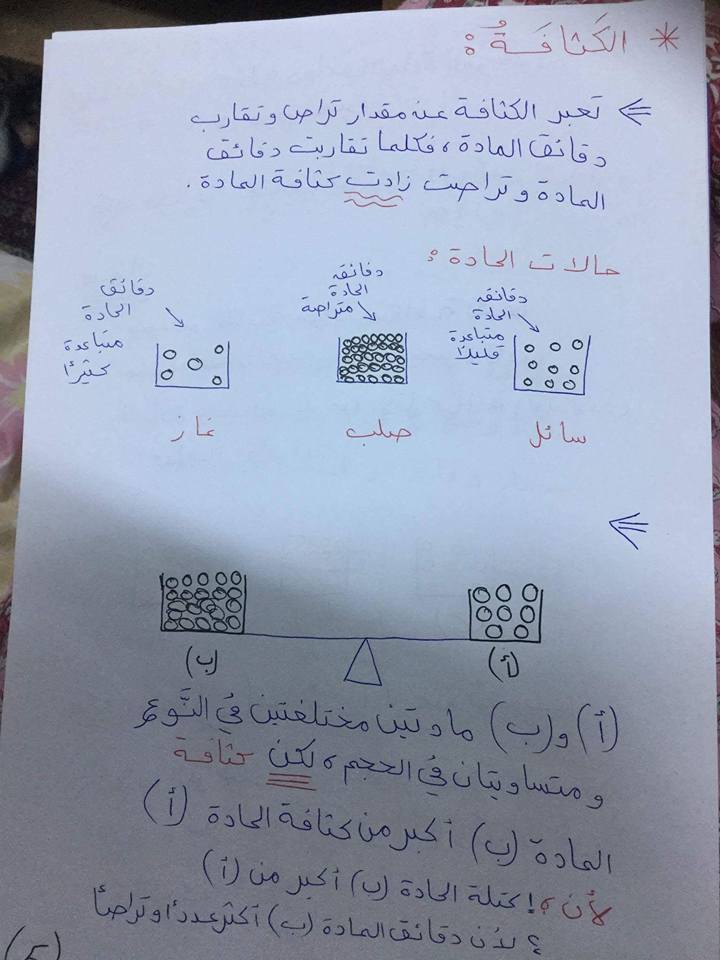 * الكَثافَةُ :
تعبر الكثافة عن مقدار تراص وتقارب
دقائق المادة ، فكلما تقاربت دقائق
المادة وتراصت زادت كثافة المادة .
حالات المادة :
دقائق
المادة
متباعدة
قليلًا
سائل
دقائق
المادة
متراصة
صلب
دقائق
المادة
متباعدة
كثيرًا
غاز
(أ)
(ب)
(أ) و(ب) مادتين مختلفتين في النَّوع
ومتساويتان في الحجم ، لكن كثافة
المادة (ب) أكبر من كثافة المادة (أ)
لأن ،! كتلة المادة (ب) أكبر من (أ)
؟ لأن دقائق المادة (ب) أكثر عددًا وتراصًا
(٥)